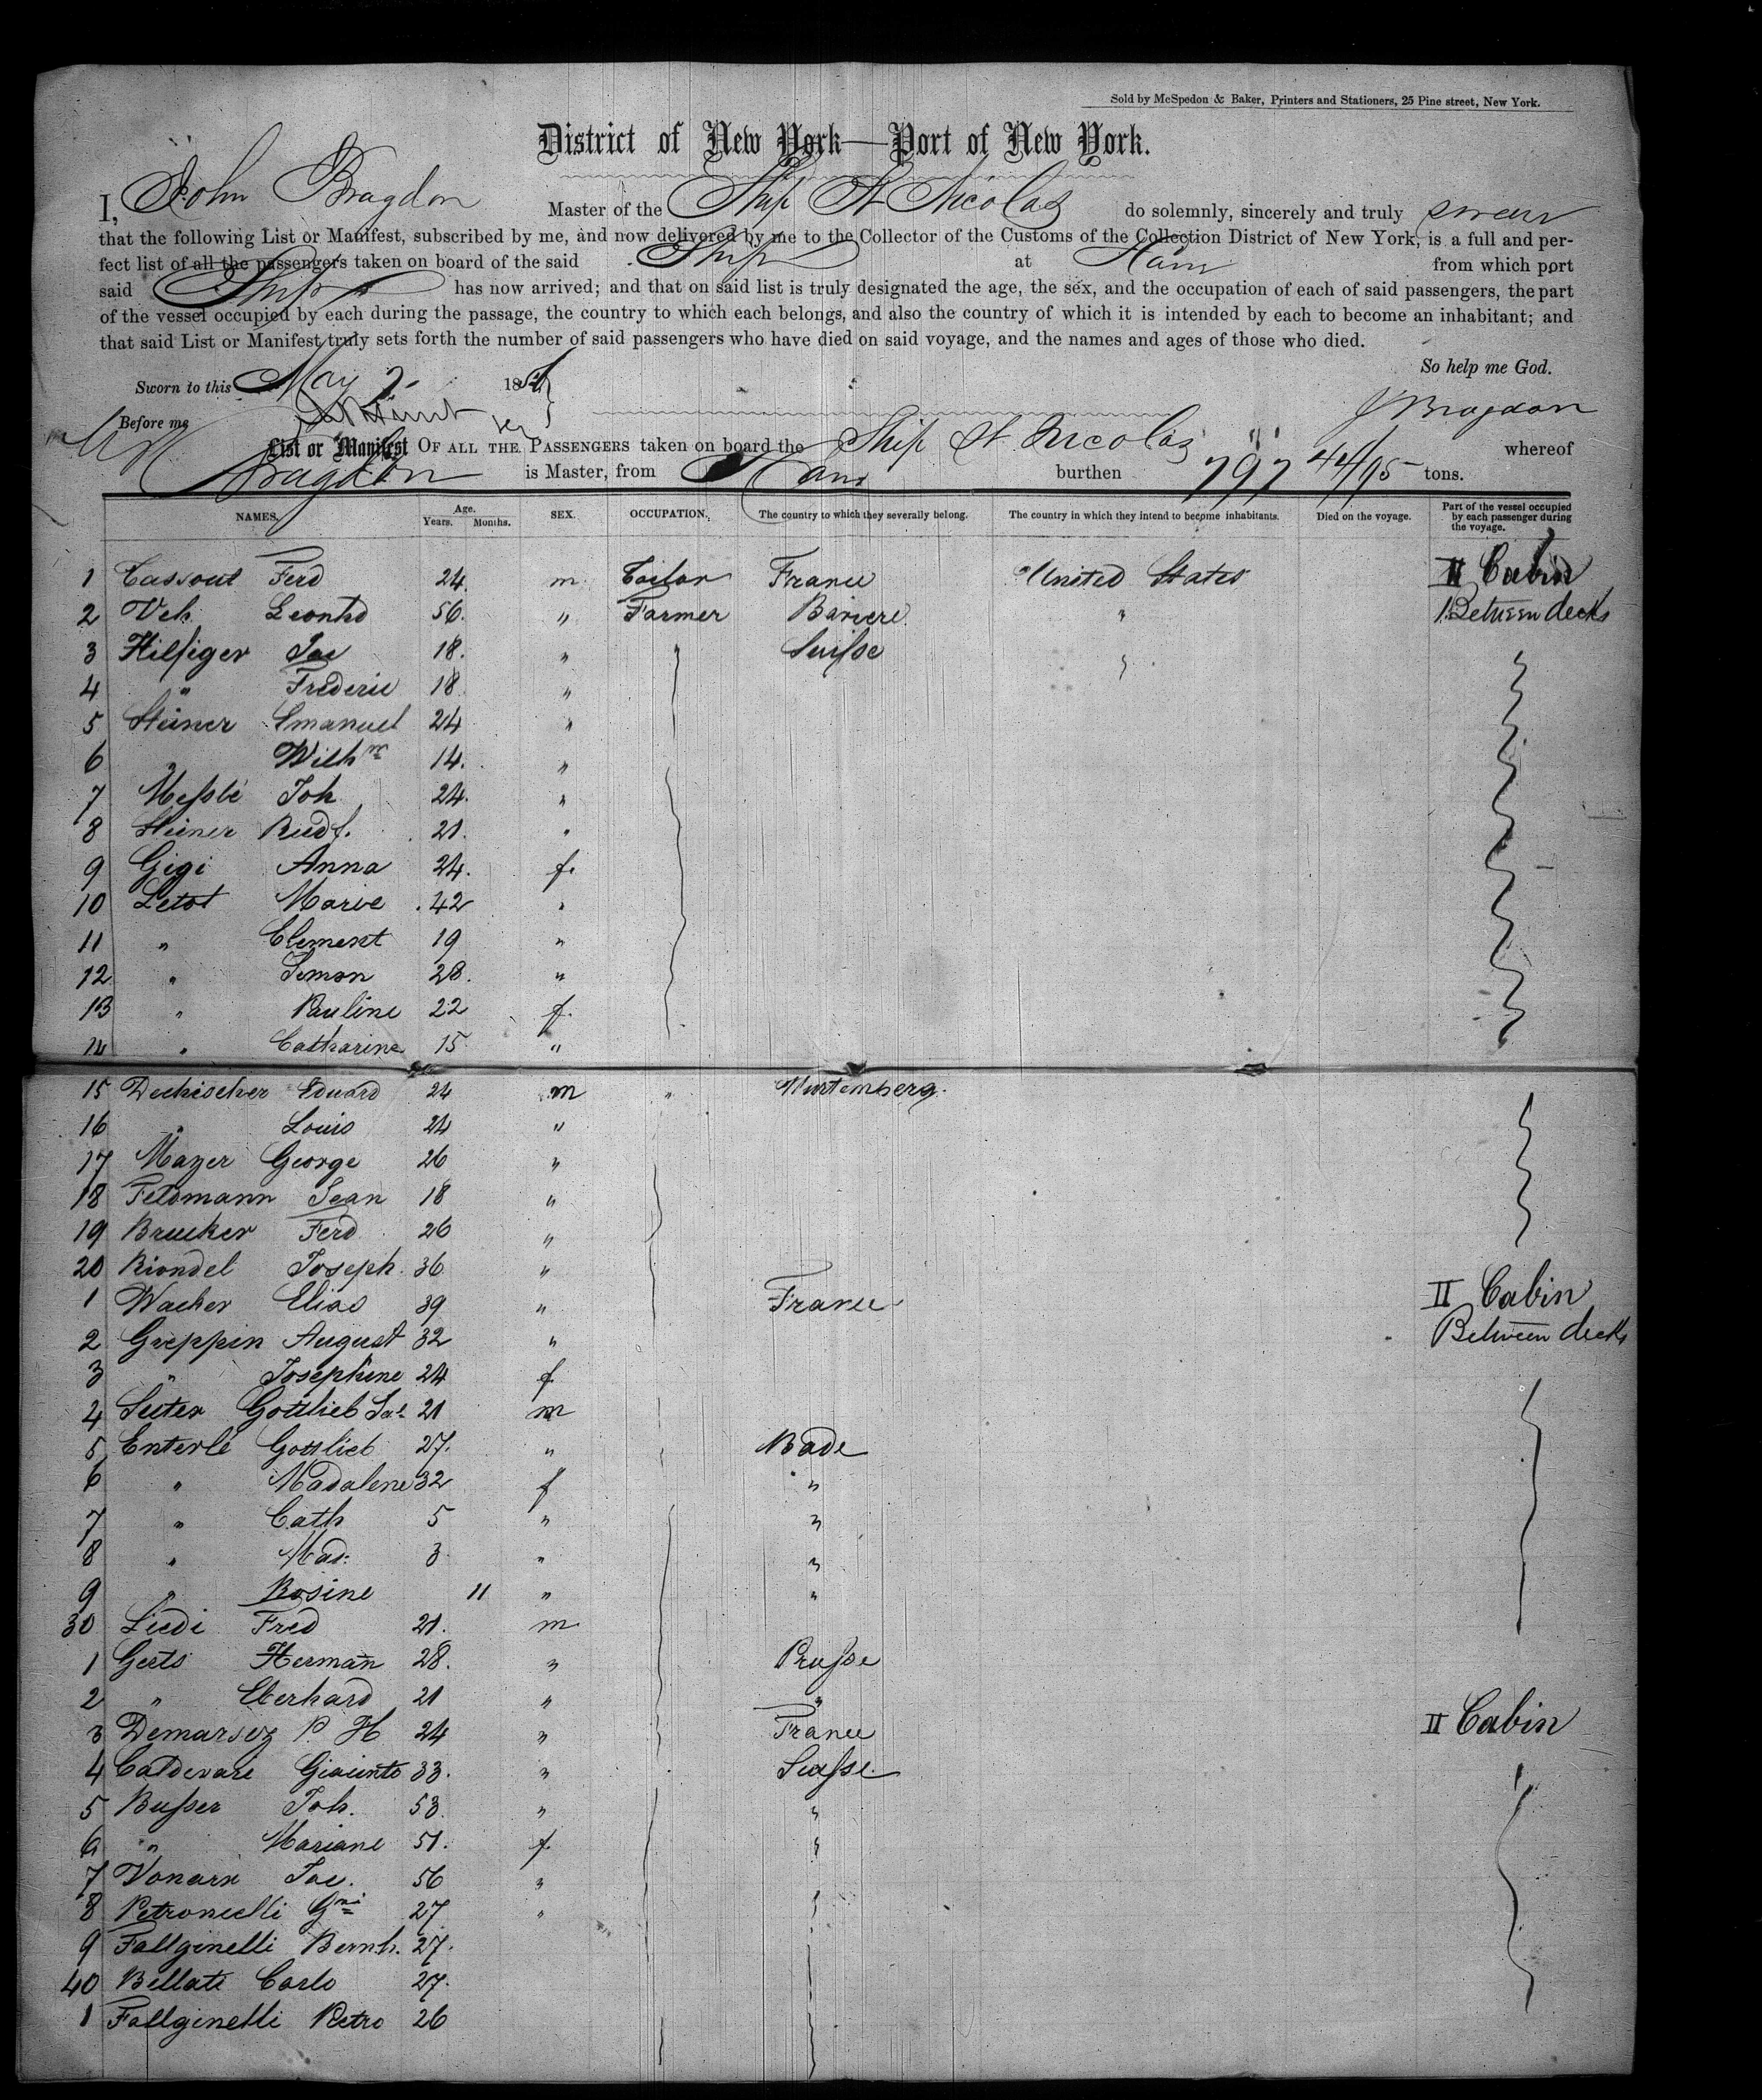 Sold by McSpedon & Baker, Printers and Stationers, 25 Pine street, New York.
District of New York—Port of New York.
I, John Bragdon Master of the Ship St Nicolas do solemnly, sincerely and truly swear
that the following List or Manifest, subscribed by me, and now delivered by me to the Collector of the Customs of the Collection District of New York, is a full and per-
fect list of all the passengers taken on board of the said Ship at from which port
said Ship has now arrived; and that on said list is truly designated the age, the sex, and the occupation of each of said passengers, the part
of the vessel occupied by each during the passage, the country to which each belongs, and also the country of which it is intended by each to become an inhabitant; and
that said List or Manifest truly sets forth the number of said passengers who have died on said voyage, and the names and ages of those who died.
So help me God.
Sworn to this May 185
J Bragdon
Before me
List or Manifest OF ALL THE PASSENGERS taken on board the Ship St Nicolas whereof
Bragdon is Master, from burthen 797 44/95 tons.
NAMES. Age. Years. Months. SEX. OCCUPATION. The country to which they severally belong. The country in which they intend to become inhabitants. Died on the voyage. Part of the vessel occupied by each passenger during the voyage.
1 Cassout Ferd 24. m. Tailor France United States II Cabin
2 Veh Leonhd 56. " Farmer Baviere " Between decks
3 Hilfiger Jac 18. " Suisse
4 " Frederic 18 "
5 Steiner Emanuel 24 "
6 " Wilhm 14. "
7 Messle Joh 24. "
8 Steiner Rudf. 21. "
9 Gigi Anna 24. f.
10 Letot Marie 42 "
11 " Clement 19 "
12 " Simon 28. "
13 " Pauline 22 f.
14 " Catharine 15 "
15 Dechischer Eduard 24 m " Wurtemberg
16 " Louis 24 "
17 Mayer George 26 "
18 Feldmann Jean 18 "
19 Brucker Ferd 26 "
20 Riondel Joseph. 36 "
1 Wacher Elias 39 " France II Cabin
2 Greppin August 32 " Between decks
3 " Josephine 24 f
4 Suter Gottlieb Sal 21 m
5 Enterle Gottlieb 27. " Bade
6 " Madalene 32 f "
7 " Cath 5 " "
8 " Mad: 3 " "
9 " Rosine 11 " "
30 Liedi Fred 21. m
1 Gerts Herman 28. " Prusse
2 " Eberhard 21 " "
3 Demarsez P. H 24 " France II Cabin
4 Caldevare Giacinto 33. " Suisse
5 Busser Joh. 53. " "
6 " Mariane 51. f. "
7 Vonarx Jac. 56 "
8 Petronielli Gni 27 "
9 Fallginelli Bernh. 27.
40 Bellati Carlo 27.
1 Fallginelli Pietro 26